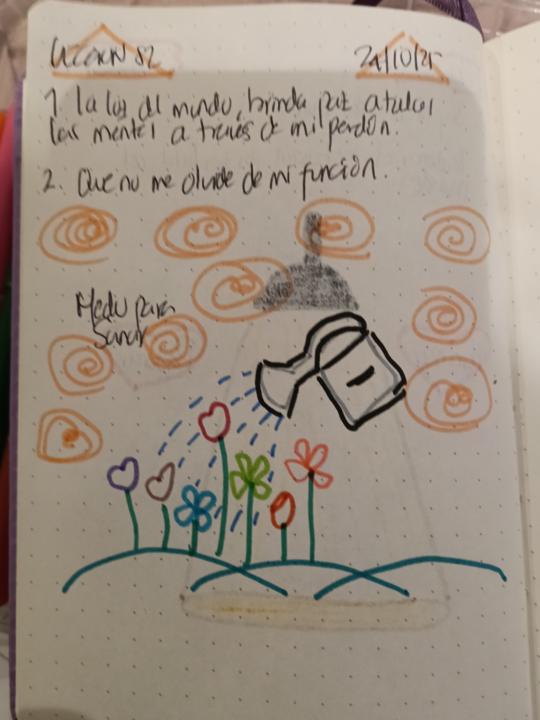 LECCIÓN 82 24/10/25
1. La luz del mundo, brinda paz a todas
las mentes a través de mi perdón.
2. Que no me olvide de mi función.
para
sanar